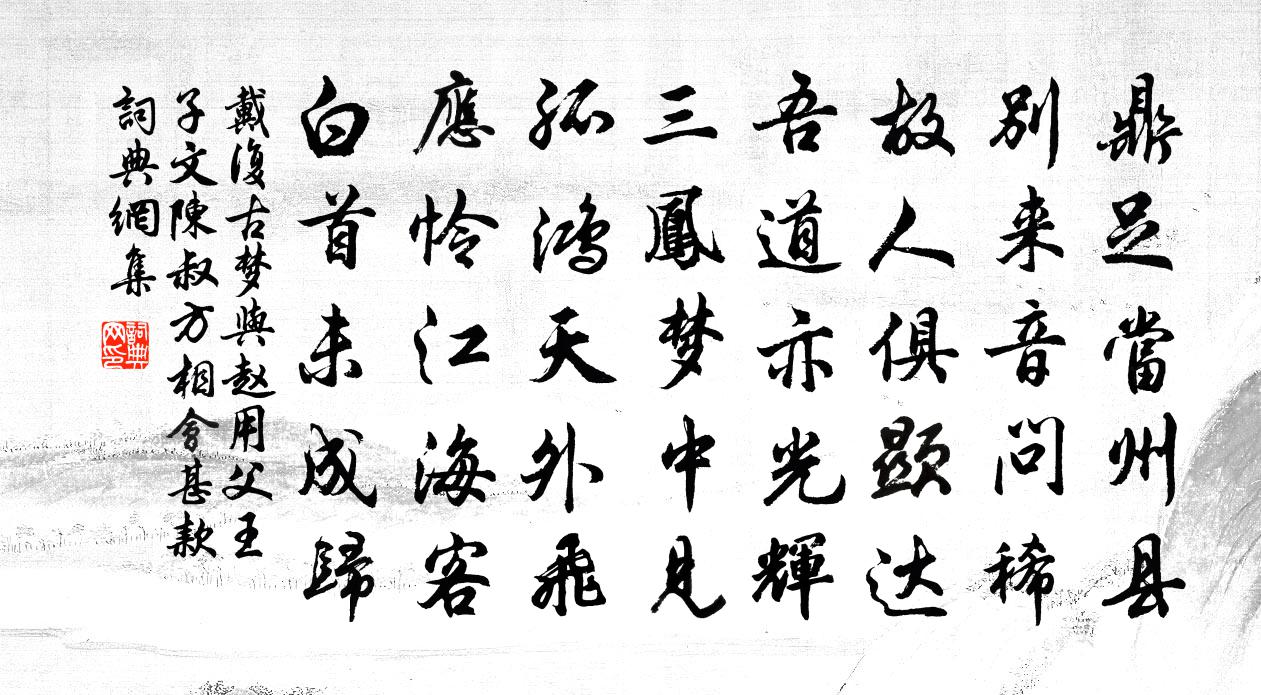 鼎足當州县
别来音问稀
故人俱顯达
吾道亦光輝
三鳳梦中見
孤鴻天外飛
應怜江海客
白首未成歸
戴復古梦與赵用父王
子文陳叔方相會甚款
詞典網集
詞典
网印